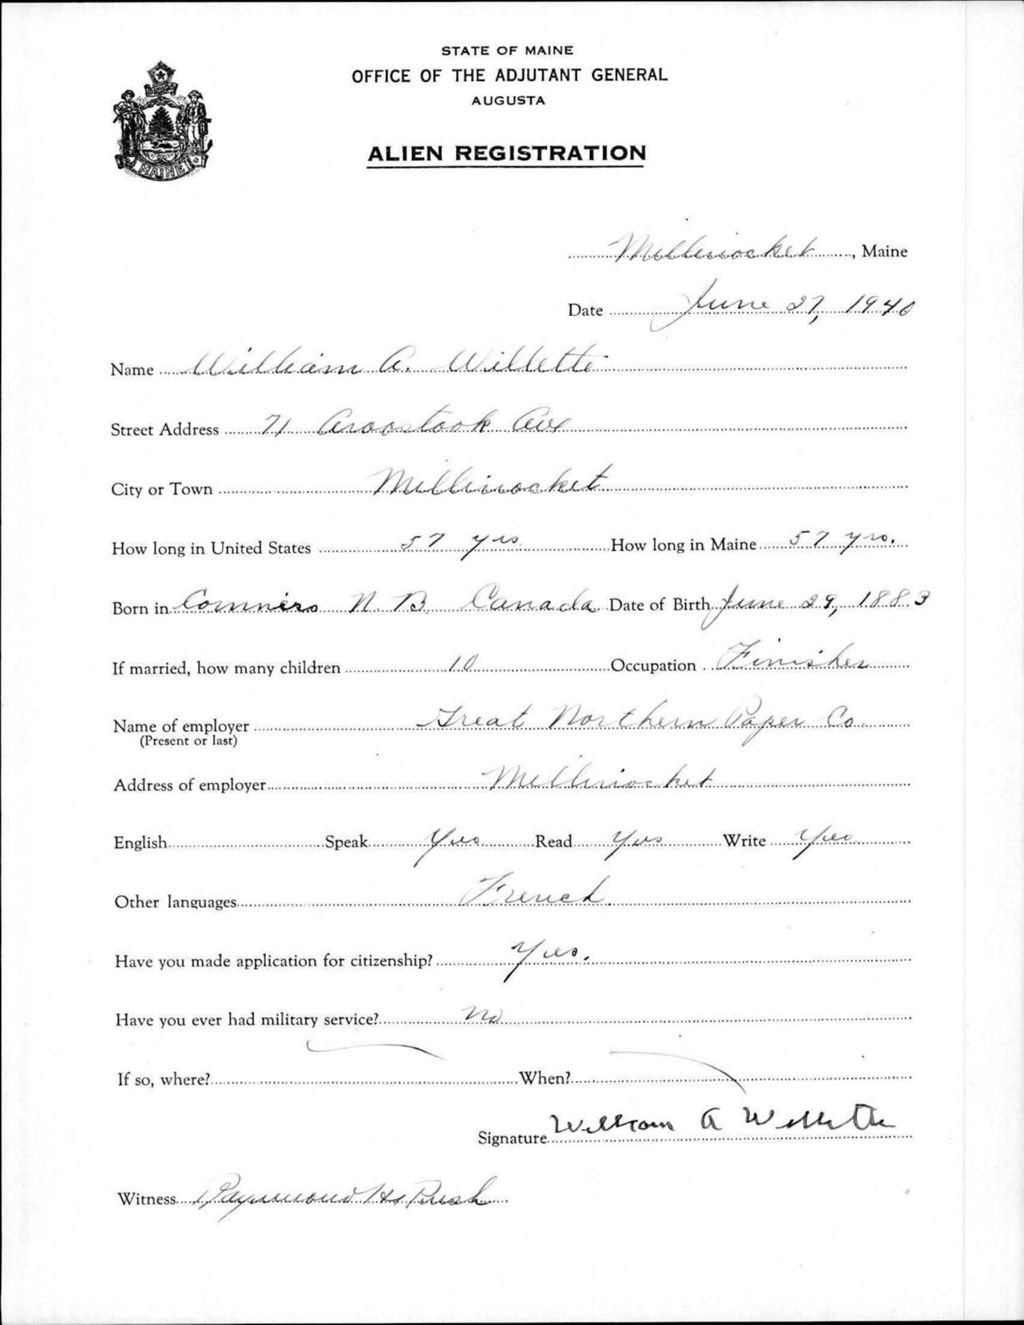 STATE OF MAINE
OFFICE OF THE ADJUTANT GENERAL
AUGUSTA
ALIEN REGISTRATION
MAINE
Millinocket, Maine
Date June 27, 1940
Name William A. Willette
Street Address 71 Aroostook Ave
City or Town Millinocket
How long in United States 57 yrs How long in Maine 57 yrs.
Born in Conners N. B. Canada Date of Birth June 29, 1883
If married, how many children 10 Occupation Finisher
Name of employer Great Northern Paper Co
(Present or last)
Address of employer Millinocket
English Speak Yes Read Yes Write Yes
Other languages French
Have you made application for citizenship? Yes.
Have you ever had military service? No
If so, where? When?
Signature William A Willette
Witness Raymond H. Rush